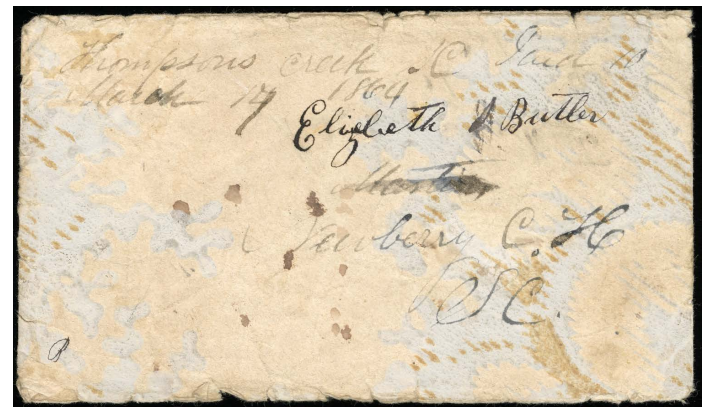 Thompsons creek SC Paid 10
March 14 1864
Elizbeth J Butler
Martin
Newberry C. H
SC.
P